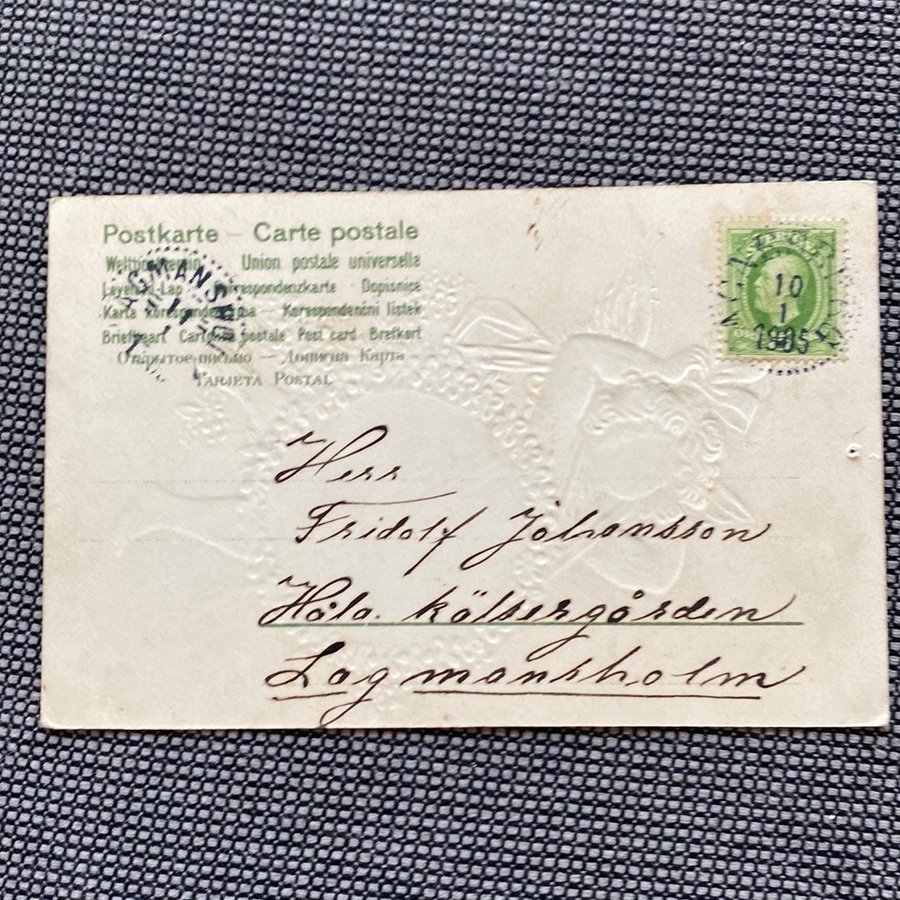 Postkarte — Carte postale
Weltpostverein Union postale universelle
Levelező-Lap Correspondenzkarte Dopisnice
Karta korespondencyjna — Korespondenční listek
Brefkaart Cartolina postale Post card Brefkort
Открытое письмо — Дописна Карта
Tarjeta Postal
10
1
1905
Herr
Fridolf Johansson
Håla. kölsergården
Lagmansholm